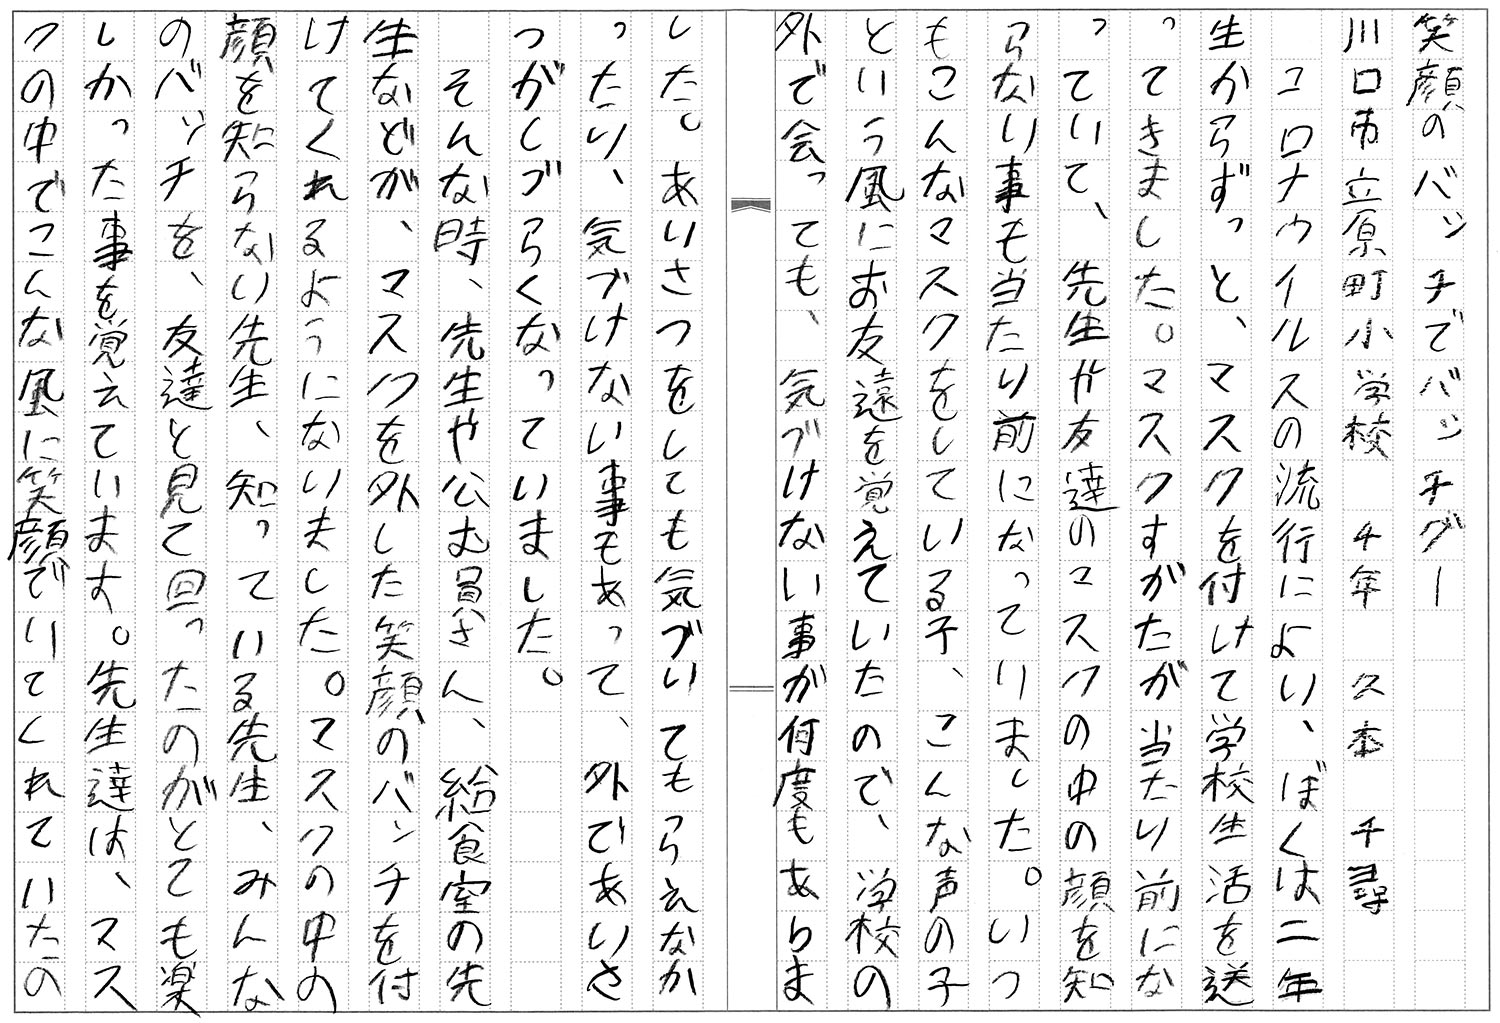 笑顔のバッチでバッチグー
川口市立原町小学校　チ年　久本　千尋
コロナウイルスの流行により、ぼくは二年
生からずっと、マスクを付けて学校生活を送
ってきました。マスクすがたが当たり前にな
っていて、先生や友達のマスクの中の顔を知
らない事も当たり前になっていました。いつ
もこんなマスクをしている子、こんな声の子
という風にお友達を覚えていたので、学校の
外で会っても、気づけない事が何度もありま
した。あいさつをしても気づいてもらえなか
ったり、気づけない事もあって、外であいさ
つがしづらくなっていました。
そんな時、先生や公む員さん、給食室の先
生などが、マスクを外した笑顔のバッチを付
けてくれるようになりました。マスクの中の
顔を知らない先生、知っている先生、みんな
のバッチを、友達と見て回ったのがとても楽
しかった事を覚えています。先生達は、マス
クの中でこんな風に笑顔でいてくれていたの